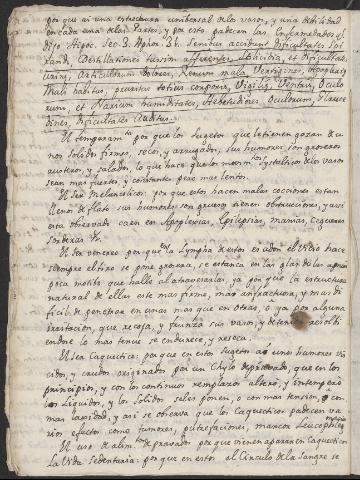 por que ai una estructura universal de los vasos, y una debilidad
en cada una de las Partes; y por esto, padecen las Enfermedades q̃
dijo Hipoc. Sec. 3. Aphor. 31. Senibus accidunt dificultates Spi
randi, Destillationes tussim afferentes, et dificultates
urinę, Articulorum dolores, Renum mala, Vertigines, Apoplexię
Mali habitus, pruritus totius corporis, Vigilię, Ventris, Oculo
rum, et Narium humiditates, Hebetudines Oculorum,
dines, Dificultates Auditus.
El temperam.to por que los Sugetos que le tienen gozan de u
nos Solidos firmes, secos, y arrugados, sus humores son groseros
austeros, y salados, lo que hace que los movim.tos Systalticos de los vasos
sean mas fuertes, y constantes pero mas lentos.
El Ser Melancolico: por que estos hacen malas cocciones estan
llenos de flatos sus humores son gruesos tienen obstrucciones, y assi
esta observado caen en Apoplexias, Epilepsias, manias, Cegueras
El ser venereo por que en la Lympha de estos en todo el Vicio hace
siempre el tiro se pone grosera, se estanca en las glandulas a
poca motibo que halle al atravesarlas, ya por que la estructura
natural de ellas este mas firme, mas infractuosa, y mas di
ficil de penetrar en unas mas que en otras, ò ya por alguna
que recoja, y frunza sus vasos, y detenga resolbi
endose lo mas tenue se endurece, y reseca.
El sea Caquectico: por que en estos sugetos ai unos humores vi
cidos, y crudos originados por un Chylo depravado, que en los
principios, y con los continuos remplazos alterò, y intemperò
los Liquidos, y los Solidos se les ponen, o con mas tension, o con
mas laxidad, y asi se observa que los Caquecticos padecen va
rios efectos como tumores, putrefaciones, Leucophleg
El uso de alim.tos depravados por que vienen a parar en Caquecticos
La Vida Sedentaria: por que en estos el Circulo de la Sangre se